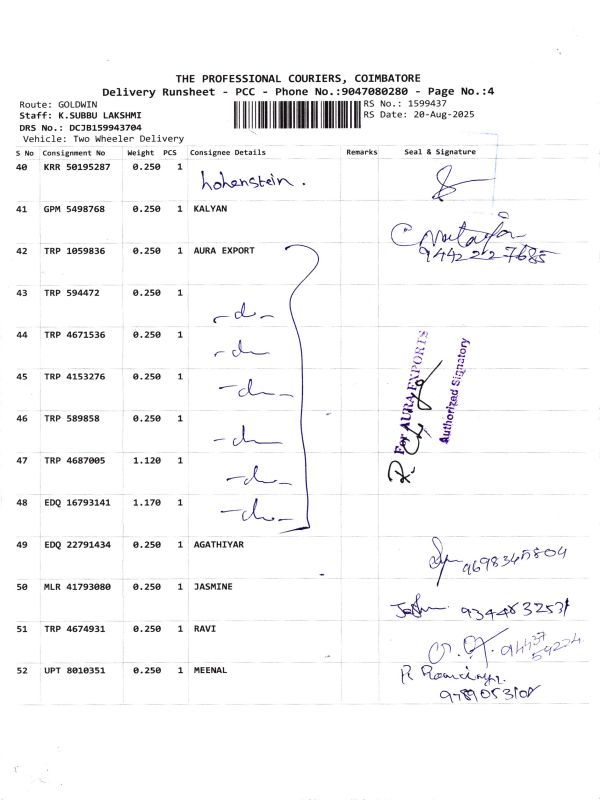 THE PROFESSIONAL COURIERS, COIMBATORE
Delivery Runsheet - PCC - Phone No.:9047080280 - Page No.:4
Route: GOLDWIN
RS No.: 1599437
Staff: K.SUBBU LAKSHMI
RS Date: 20-Aug-2025
DRS No.: DCJB159943704
Vehicle: Two Wheeler Delivery
S No Consignment No Weight PCS Consignee Details Remarks Seal & Signature
40 KRR 50195287 0.250 1 hohenstein.
41 GPM 5498768 0.250 1 KALYAN
9442227685
42 TRP 1059836 0.250 1 AURA EXPORT
43 TRP 594472 0.250 1 -do-
44 TRP 4671536 0.250 1 -do-
45 TRP 4153276 0.250 1 -do-
46 TRP 589858 0.250 1 -do-
47 TRP 4687005 1.120 1 -do-
48 EDQ 16793141 1.170 1 -do-
For AURA EXPORTS
Authorized Signatory
49 EDQ 22791434 0.250 1 AGATHIYAR 9698345804
50 MLR 41793080 0.250 1 JASMINE
51 TRP 4674931 0.250 1 RAVI
52 UPT 8010351 0.250 1 MEENAL